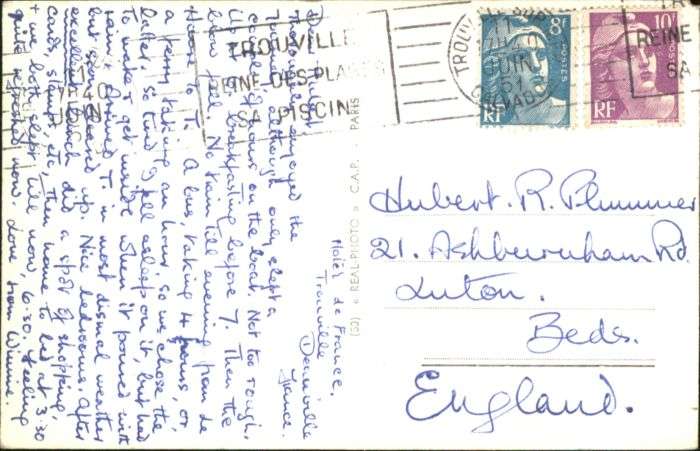 Hôtel de France,
Trouville
Deauville
France.
thoroughly enjoyed the
although only slept a
couple of hours on the boat. Not too rough.
Up & breakfasting before 7. Then the
No train till evening from Le
Havre to T. A bus, taking 4 hours, or
a ferry, taking an hour, so we chose the
latter. So tired I fell asleep on it, but had
to wake & get inside when it poured with
rain. Arrived T. in most dismal weather
but soon cleared up. Nice bedrooms. After
excellent lunch did a spot of shopping,
cards, stamps, etc, then home to bed at 3.30
+ we both slept till now, 6.30. Feeling
quite refreshed now. Love from Winnie.
(53) « REAL-PHOTO » C.A.P. PARIS
TROUVILLE
REINE DES PLAGES
SA PISCINE
18
JUIN
8F
POSTES
RF
10F
POSTES
RF
REINE
SA
Hubert. R. Plummer
21. Ashburnham Rd.
Luton.
Beds.
England.